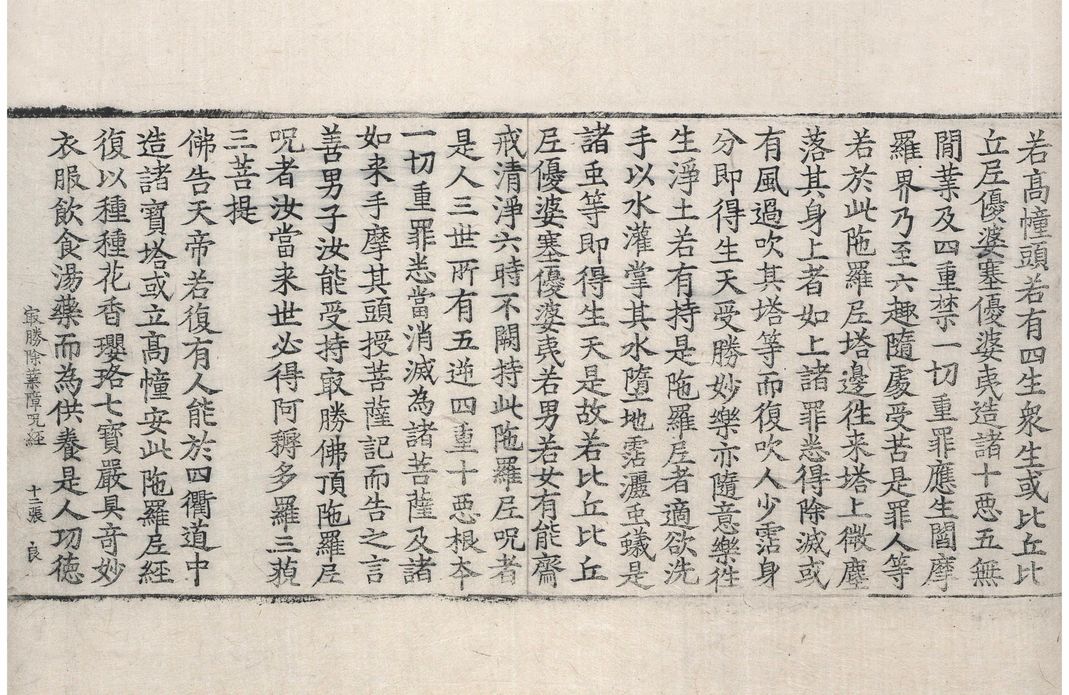 若高幢頭若有四生衆生或比丘比
丘尼優婆塞優婆夷造諸十惡五無
間業及四重禁一切重罪應生閻摩
羅界乃至六趣隨處受苦是罪人等
若於此陁羅尼塔邊徃来塔上微塵
落其身上者如上諸罪悉得除滅或
有風過吹其塔等而復吹人少霑身
分即得生天受勝妙樂亦隨意樂徃
生淨土若有持是陁羅尼者適欲洗
手以水灌掌其水墮地霑灑䖝蟻是
諸䖝等即得生天是故若比丘比丘
尼優婆塞優婆夷若男若女有能齋
戒清淨六時不闕持此陁羅尼呪者
是人三世所有五逆四重十惡根夲
一切重罪悉當消滅為諸菩薩及諸
如来手摩其頭授菩薩記而告之言
善男子汝能受持㝡勝佛頂陁羅尼
呪者汝當来世必得阿耨多羅三藐
三菩提
佛告天帝若復有人能於四衢道中
造諸寶塔或立高幢安此陁羅尼經
復以種種花香瓔珞七寶嚴具竒妙
衣服飲食湯藥而為供養是人功徳
㝡勝除業障呪經 十三張 良